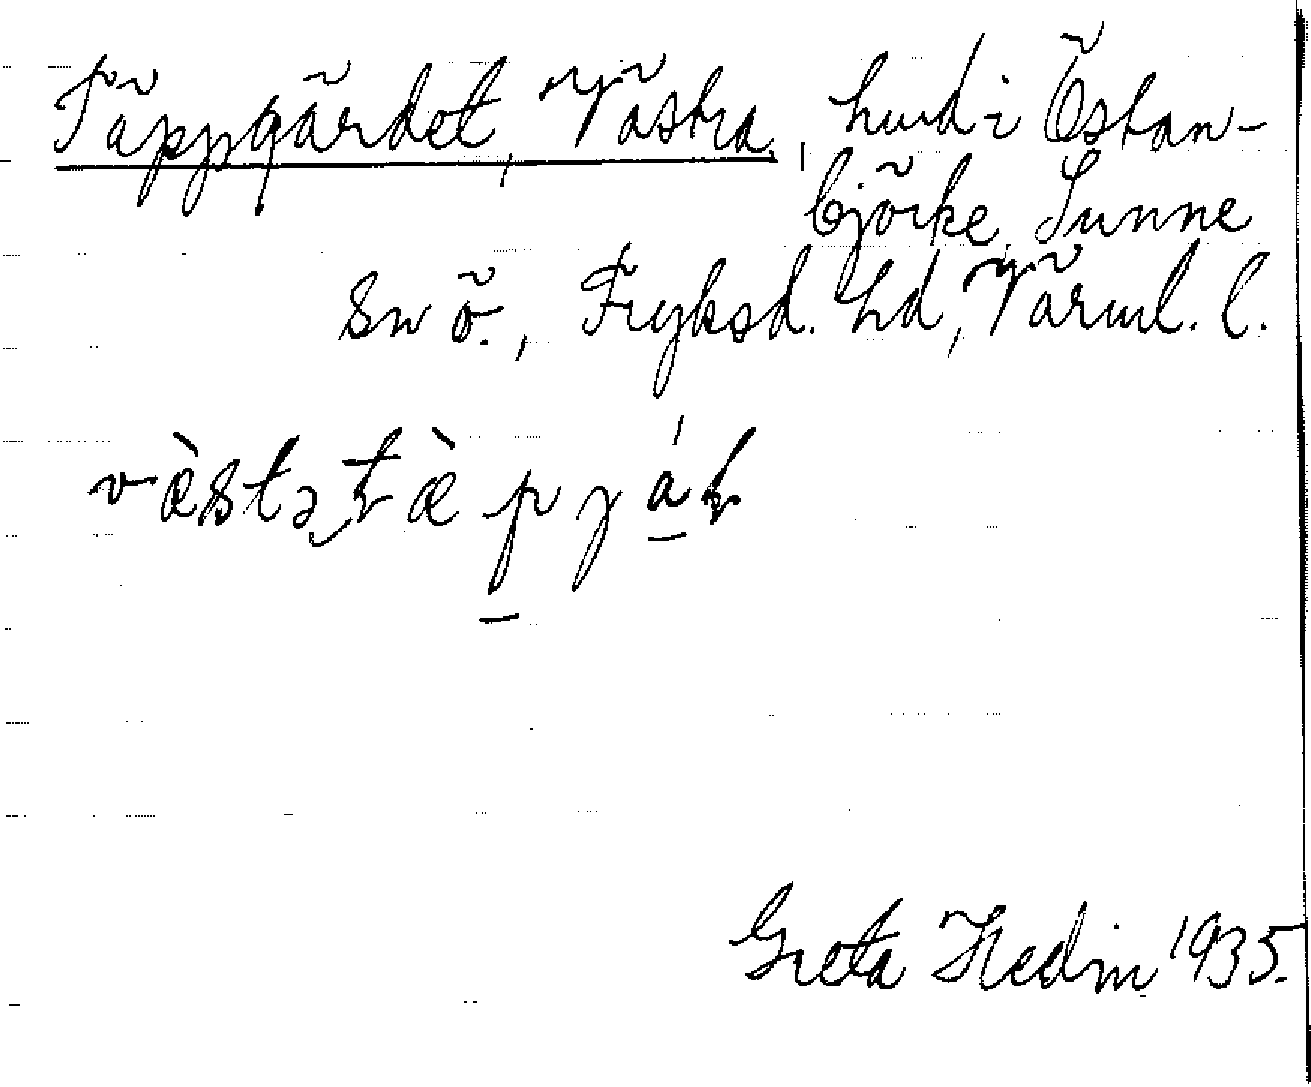 Täppgärdet, Västra, hmd i Östan-
björke, Sunne
sn ö., Fryksd. hd, Värml. l.
væ̀stə tæ̀pjáḷ
Greta Hedin 1935.